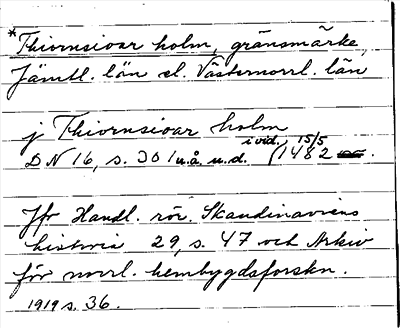 *Thiornsioar holm, gränsmärke,
Jämtl. län el. Västernorrl. län
j Thiornsioar holm
DN 16, s. 301 u.å. u.d. (i vid. 15/5 1482.
Jfr Handl. rör. Skandinaviens
historia 29, s. 47 och Arkiv
för norrl. hembygdsforskn.
1919 s. 36.